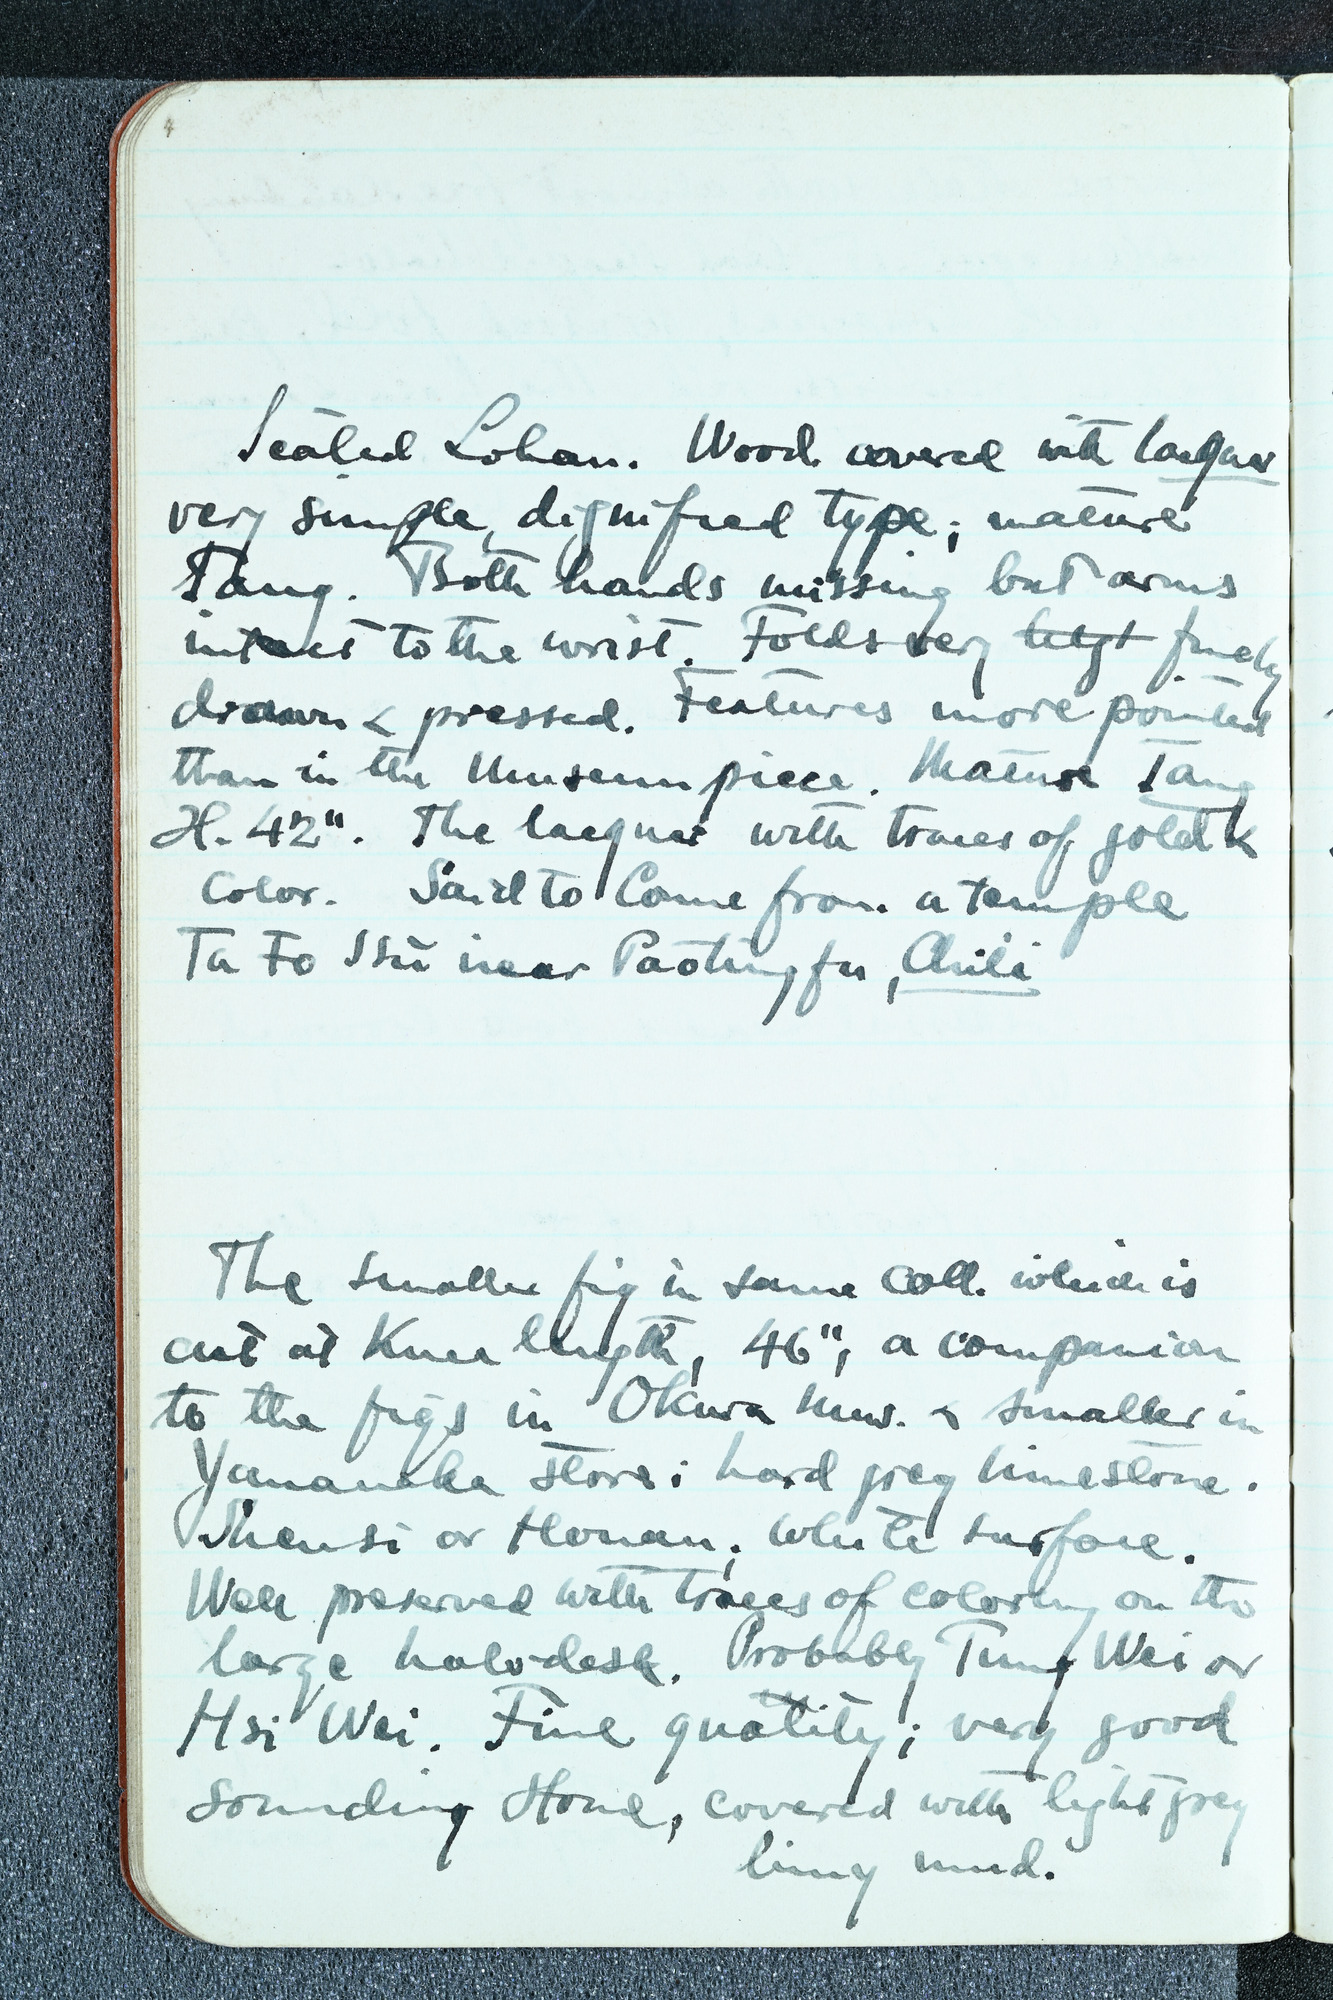 4
Seated Lohan. Wood covered with lacquer
very simple, dignified type; mature
Tang. Both hands missing but arms
intact to the wrist. Folds very finely
drawn & pressed. Features more pointed
than in the Museum piece. Mature Tang
H. 42". The lacquer with traces of gold &
Color. Said to Come from a temple
Ta Fo Ssu near Paotingfu, Chili
The smaller fig in same coll. which is
cut at Knee length, 46", a companion
to the figs in Okura Mus. & smaller in
Yamanaka store; hard grey limestone.
Shensi or Honan; white surface.
Well preserved with traces of coloring on the
large halo-desk. Probably Tung Wei or
Hsi Wei. Fine quality; very good
sounding stone, covered with light grey
limy mud.